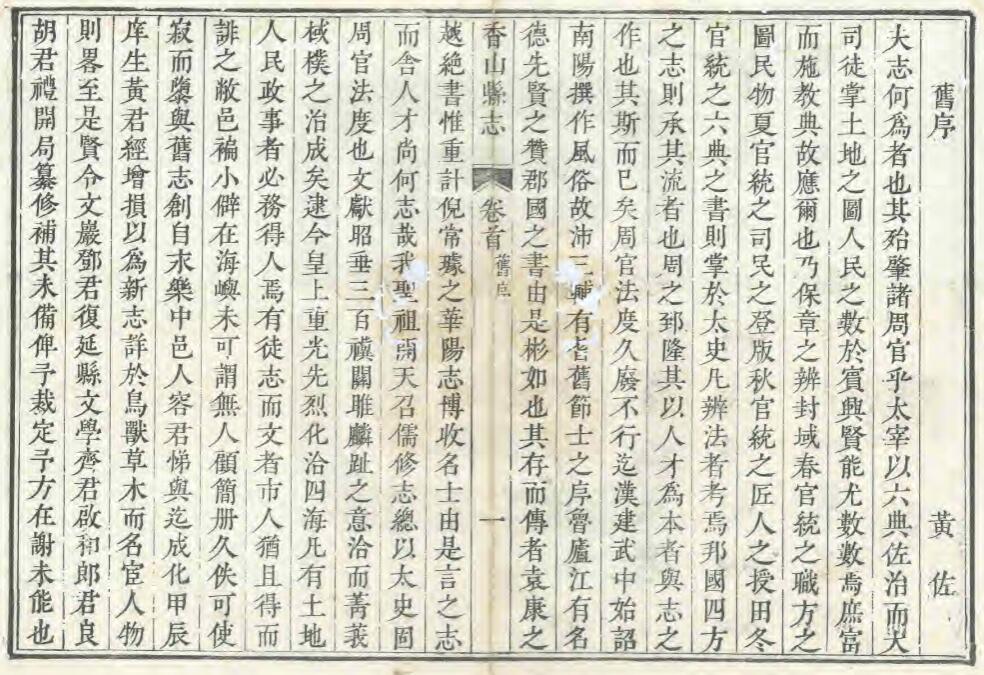 舊序 黃佐
夫志何爲者也其殆肇諸周官乎太宰以六典佐治而大
司徒掌土地之圖人民之數於賓興賢能尤數數焉庶富
而施教典故應爾也乃保章之辨封域春官統之職方之
圖民物夏官統之司民之登版秋官統之匠人之授田冬
官統之六典之書則掌於太史凡辨法者考焉邦國四方
之志則承其流者也周之郅隆其以人才爲本者與志之
作也其斯而已矣周官法度久廢不行迄漢建武中始詔
南陽撰作風俗故沛三輔有耆舊節士之序魯廬江有名
德先賢之贊郡國之書由是彬如也其存而傳者袁康之
香山縣志 卷首 舊序 一
越絕書惟重計倪常璩之華陽志博收名士由是言之志
而舍人才尚何志哉我聖祖開天召儒修志總以太史固
周官法度也文獻昭垂三百禩關雎麟趾之意洽而菁莪
棫樸之治成矣逮今皇上重光先烈化洽四海凡有土地
人民政事者必務得人焉有徒志而文者市人猶且得而
誹之敝邑褊小僻在海嶼未可謂無人顧簡册久佚可使
寂而蔑與舊志創自永樂中邑人容君悌與迄成化甲辰
庠生黃君經增損以爲新志詳於鳥獸草木而名宦人物
則畧至是賢令文巖鄧君復延縣文學齊君啟和郎君良
胡君禮開局纂修補其未備俾予裁定予方在謝未能也